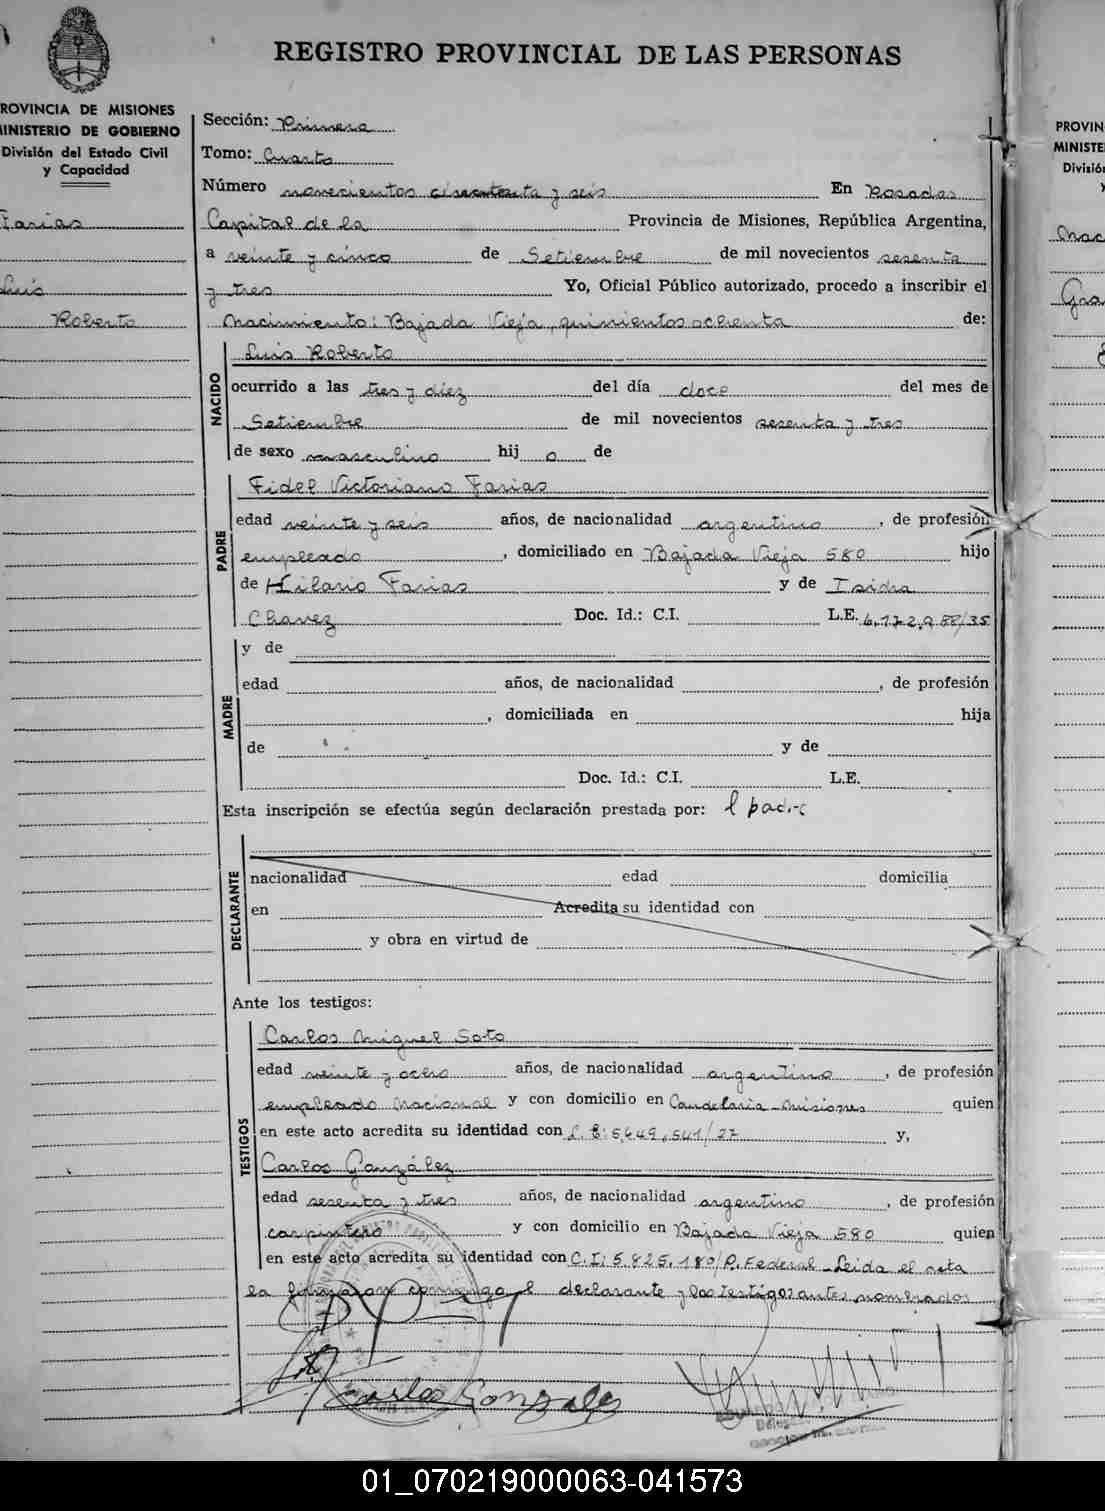 REGISTRO PROVINCIAL DE LAS PERSONAS
PROVINCIA DE MISIONES
MINISTERIO DE GOBIERNO
División del Estado Civil
y Capacidad
Farias
Luis
Roberto
Sección: Primera
Tomo: Cuarto
Número novecientos cincuenta y seis En Posadas
Capital de la Provincia de Misiones, República Argentina,
a veinte y cinco de Setiembre de mil novecientos sesenta
y tres Yo, Oficial Público autorizado, procedo a inscribir el
Nacimiento: Bajada Vieja, quinientos ochenta de:
NACIDO
Luis Roberto
ocurrido a las tres y diez del día doce del mes de
Setiembre de mil novecientos sesenta y tres
de sexo masculino hij o de
PADRE
Fidel Victoriano Farias
edad veinte y seis años, de nacionalidad argentino, de profesión
empleado, domiciliado en Bajada Vieja 580 hijo
de Hilario Farias y de Isidra
Chavez Doc. Id.: C.I. L.E.
MADRE
y de
edad años, de nacionalidad , de profesión
, domiciliada en hija
de y de
Doc. Id.: C.I. L.E.
Esta inscripción se efectúa según declaración prestada por: el padre
DECLARANTE
nacionalidad edad domicilia
en Acredita su identidad con
y obra en virtud de
Ante los testigos:
TESTIGOS
Carlos Miguel Soto
edad veinte y ocho años, de nacionalidad argentino, de profesión
empleado Nacional y con domicilio en Candelaria - Misiones quien
en este acto acredita su identidad con L.E: 5,649,541/27 y,
Carlos González
edad sesenta y tres años, de nacionalidad argentino, de profesión
carpintero y con domicilio en Bajada Vieja 580 quien
en este acto acredita su identidad con C.I: 5.825.180/P. Federal - Leida el acta
la firmaron conmigo el declarante y los testigos antes nombrados
Carlos Gonzales
PROVIN
MINISTE
División
Nac
Gra
01_070219000063-041573